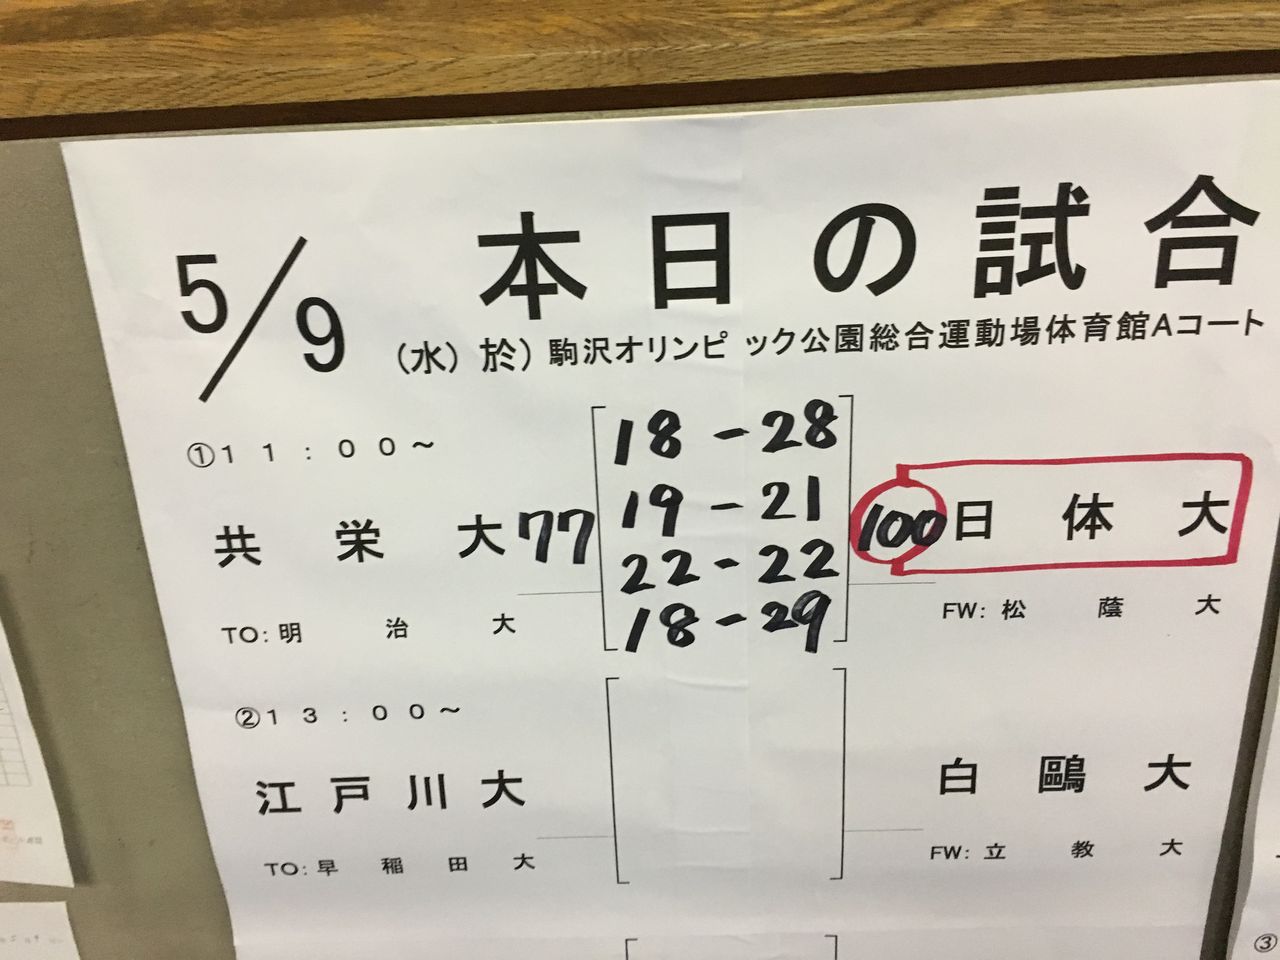 5/9 本日の試合
(水) 於) 駒沢オリンピック公園総合運動場体育館Aコート
①11:00～
18-28
19-21
共栄大 77 100 日体大
22-22
18-29
TO:明治大 FW:松蔭大
②13:00～
江戸川大 白鷗大
TO:早稲田大 FW:立教大
③